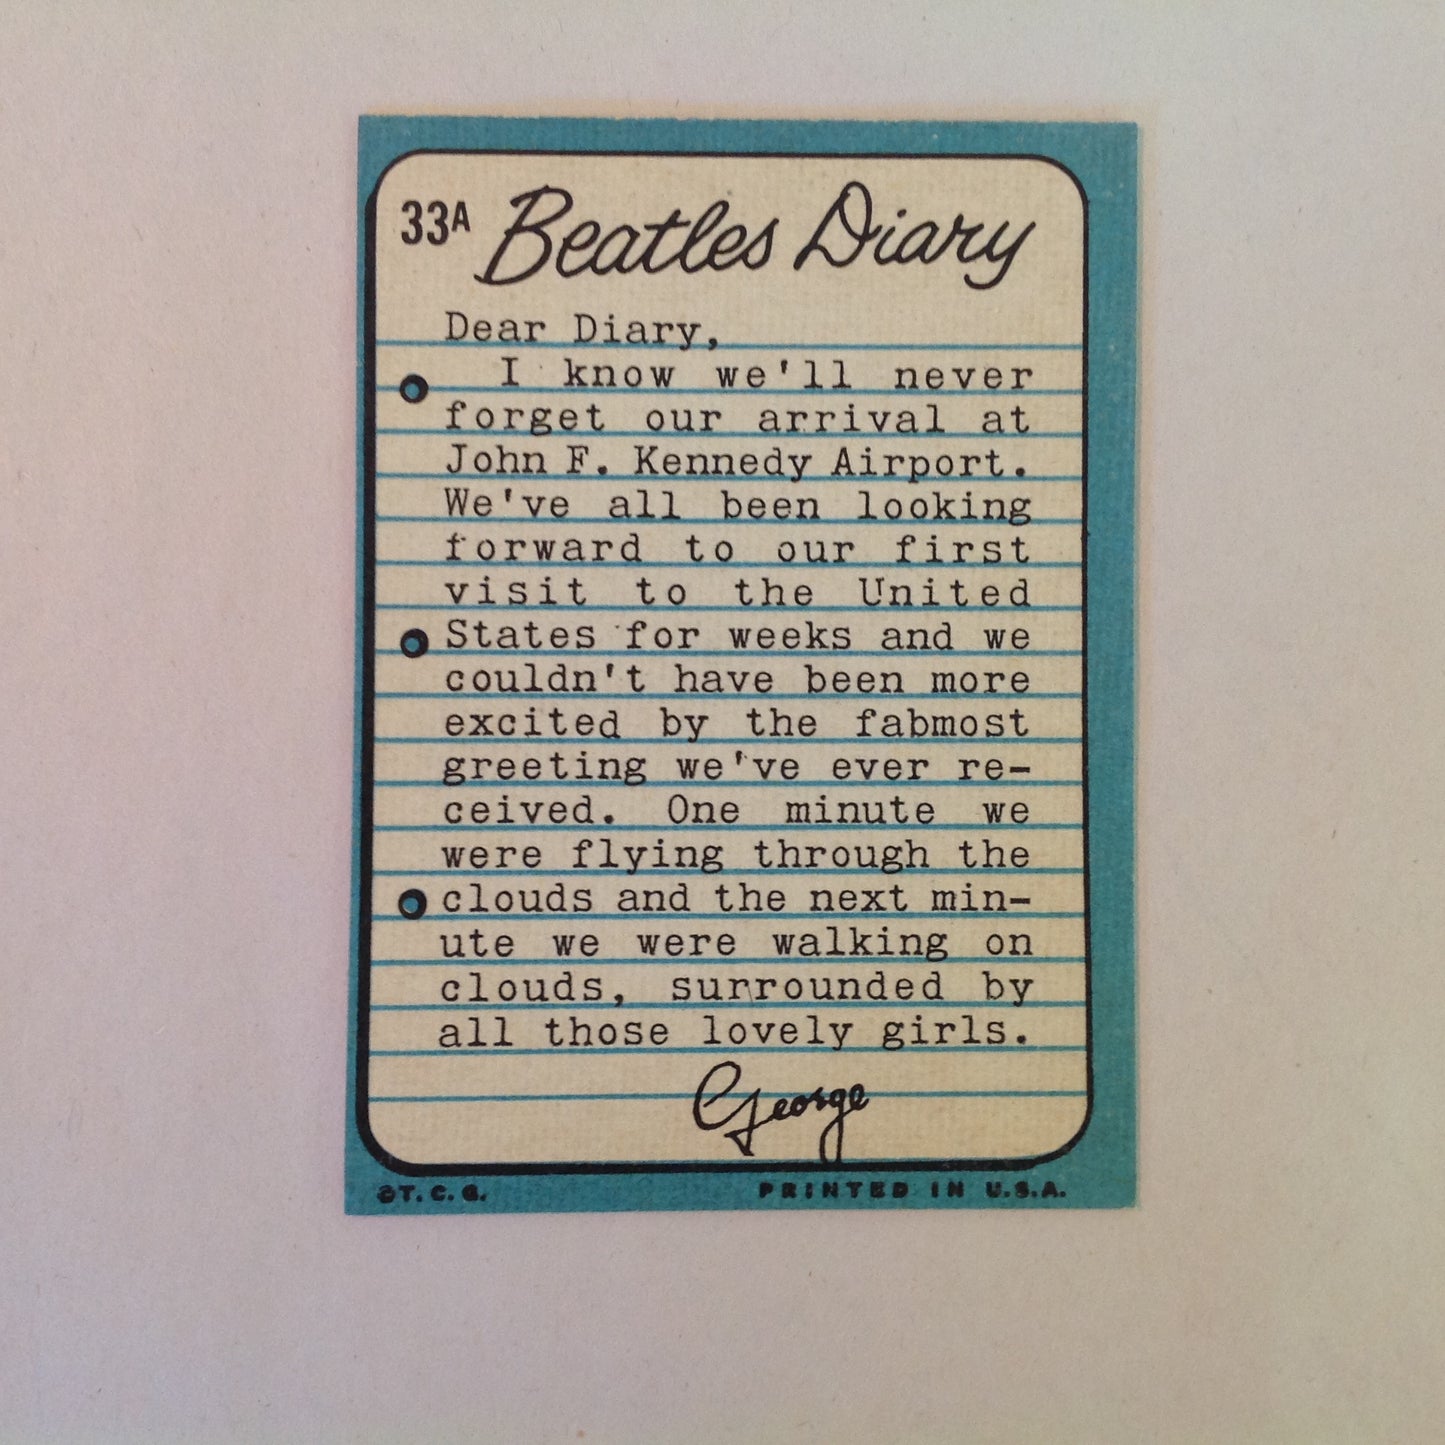 33A Beatles Diary
Dear Diary,
I know we'll never
forget our arrival at
John F. Kennedy Airport.
We've all been looking
forward to our first
visit to the United
States for weeks and we
couldn't have been more
excited by the fabmost
greeting we've ever re-
ceived. One minute we
were flying through the
clouds and the next min-
ute we were walking on
clouds, surrounded by
all those lovely girls.
George
©T.C.G. PRINTED IN U.S.A.